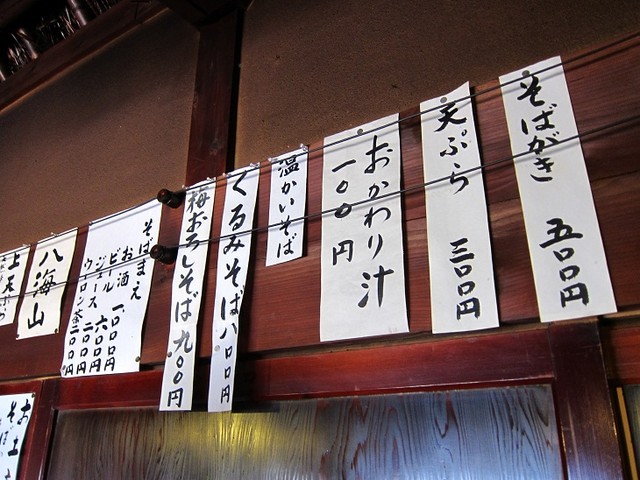 そばがき 五〇〇円
天ぷら 三〇〇円
おかわり汁
一〇〇円
温かいそば
くるみそば 八〇〇円
梅おろしそば 九〇〇円
そばまえ
お酒 一、〇〇〇円
ビール 六〇〇円
ジュース 二〇〇円
ウーロン茶 二〇〇円
八海山
お土